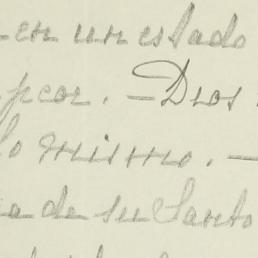 en un estado
peor. — Dios
lo mismo. —
de su Santo